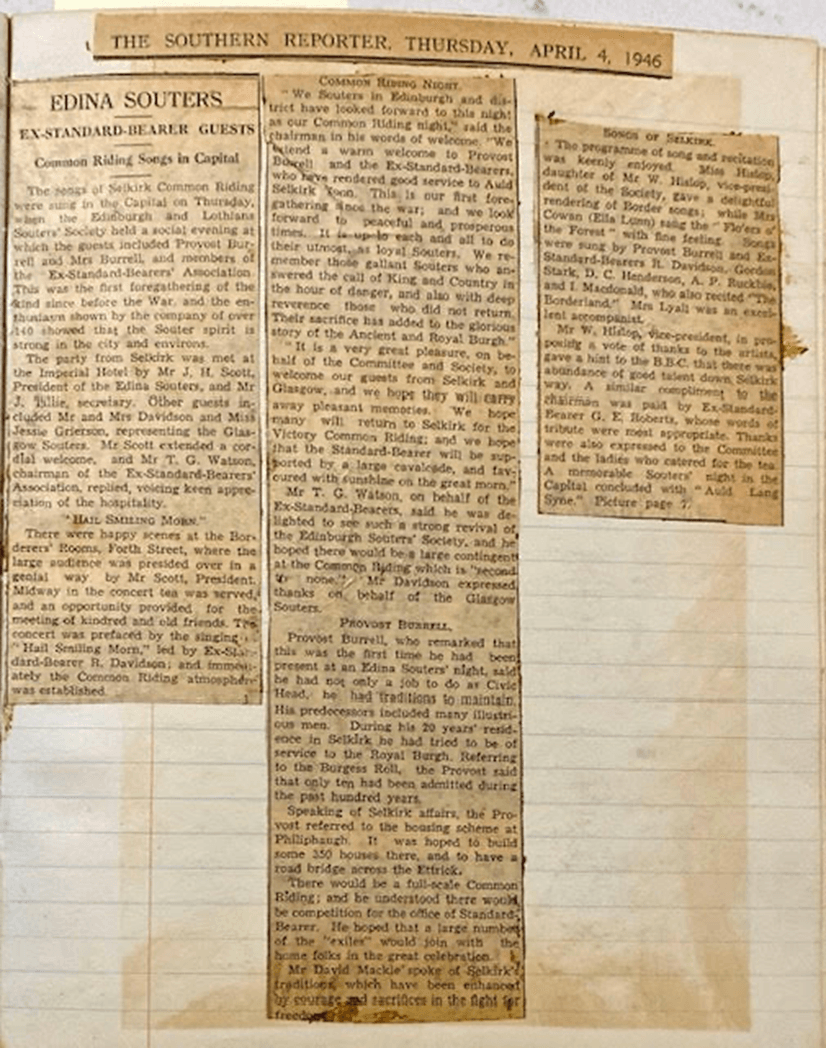 THE SOUTHERN REPORTER, THURSDAY, APRIL 4, 1946
EDINA SOUTERS
EX-STANDARD-BEARER GUESTS
Common Riding Songs in Capital
The songs of Selkirk Common Riding
were sung in the Capital on Thursday,
when the Edinburgh and Lothians
Souters' Society held a social evening at
which the guests included Provost Bur-
rell and Mrs Burrell, and members of
the Ex-Standard-Bearers' Association.
This was the first foregathering of the
kind since before the War, and the en-
thusiasm shown by the company of over
140 showed that the Souter spirit is
strong in the city and environs.
The party from Selkirk was met at
the Imperial Hotel by Mr J. H. Scott,
President of the Edina Souters, and Mr
J. Billie, secretary. Other guests in-
cluded Mr and Mrs Davidson and Miss
Jessie Grierson, representing the Glas-
gow Souters. Mr Scott extended a cor-
dial welcome, and Mr T. G. Watson,
chairman of the Ex-Standard-Bearers'
Association, replied, voicing keen appre-
ciation of the hospitality.
"HAIL SMILING MORN."
There were happy scenes at the Bor-
derers' Rooms, Forth Street, where the
large audience was presided over in a
genial way by Mr Scott, President.
Midway in the concert tea was served,
and an opportunity provided for the
meeting of kindred and old friends. The
concert was prefaced by the singing
"Hail Smiling Morn," led by Ex-Stan-
dard-Bearer R. Davidson; and immedi-
ately the Common Riding atmosphere
was established.
COMMON RIDING NIGHT.
"We Souters in Edinburgh and dis-
trict have looked forward to this night
as our Common Riding night," said the
chairman in his words of welcome. "We
extend a warm welcome to Provost
Burrell and the Ex-Standard-Bearers,
who have rendered good service to Auld
Selkirk Toon. This is our first fore-
gathering since the war; and we look
forward to peaceful and prosperous
times. It is up to each and all to do
their utmost, as loyal Souters. We re-
member those gallant Souters who an-
swered the call of King and Country in
the hour of danger, and also with deep
reverence those who did not return.
Their sacrifice has added to the glorious
story of the Ancient and Royal Burgh."
"It is a very great pleasure, on be-
half of the Committee and Society, to
welcome our guests from Selkirk and
Glasgow, and we hope they will carry
away pleasant memories. We hope
many will return to Selkirk for the
Victory Common Riding; and we hope
that the Standard-Bearer will be sup-
ported by a large cavalcade, and fav-
oured with sunshine on the great morn."
Mr T. G. Watson, on behalf of the
Ex-Standard-Bearers, said he was de-
lighted to see such a strong revival of
the Edinburgh Souters' Society, and he
hoped there would be a large contingent
at the Common Riding which is "second
to none." Mr Davidson expressed
thanks on behalf of the Glasgow
Souters.
PROVOST BURRELL.
Provost Burrell, who remarked that
this was the first time he had been
present at an Edina Souters' night, said
he had not only a job to do as Civic
Head, he had traditions to maintain.
His predecessors included many illustri-
ous men. During his 20 years' resid-
ence in Selkirk he had tried to be of
service to the Royal Burgh. Referring
to the Burgess Roll, the Provost said
that only ten had been admitted during
the past hundred years.
Speaking of Selkirk affairs, the Pro-
vost referred to the housing scheme at
Philiphaugh. It was hoped to build
some 350 houses there, and to have a
road bridge across the Ettrick.
There would be a full-scale Common
Riding; and he understood there would
be competition for the office of Standard-
Bearer. He hoped that a large number
of the "exiles" would join with the
home folks in the great celebration.
Mr David Mackie spoke of Selkirk's
traditions, which have been enhanced
by courage and sacrifices in the fight for
freedom.
SONGS OF SELKIRK.
The programme of song and recitation
was keenly enjoyed. Miss Hislop,
daughter of Mr W. Hislop, vice-presi-
dent of the Society, gave a delightful
rendering of Border songs; while Mrs
Cowan (Ella Lunn) sang the "Flo'ers o'
the Forest" with fine feeling. Songs
were sung by Provost Burrell and Ex-
Standard-Bearers R. Davidson, Gordon
Stark, D. C. Henderson, A. P. Ruckbie,
and I. Macdonald, who also recited "The
Borderland." Mrs Lyall was an excel-
lent accompanist.
Mr W. Hislop, vice-president, in pro-
posing a vote of thanks to the artists,
gave a hint to the B.B.C. that there was
abundance of good talent down Selkirk
way. A similar compliment to the
chairman was paid by Ex-Standard-
Bearer G. E. Roberts, whose words of
tribute were most appropriate. Thanks
were also expressed to the Committee
and the ladies who catered for the tea.
A memorable Souters' night in the
Capital concluded with "Auld Lang
Syne." Picture page 7.